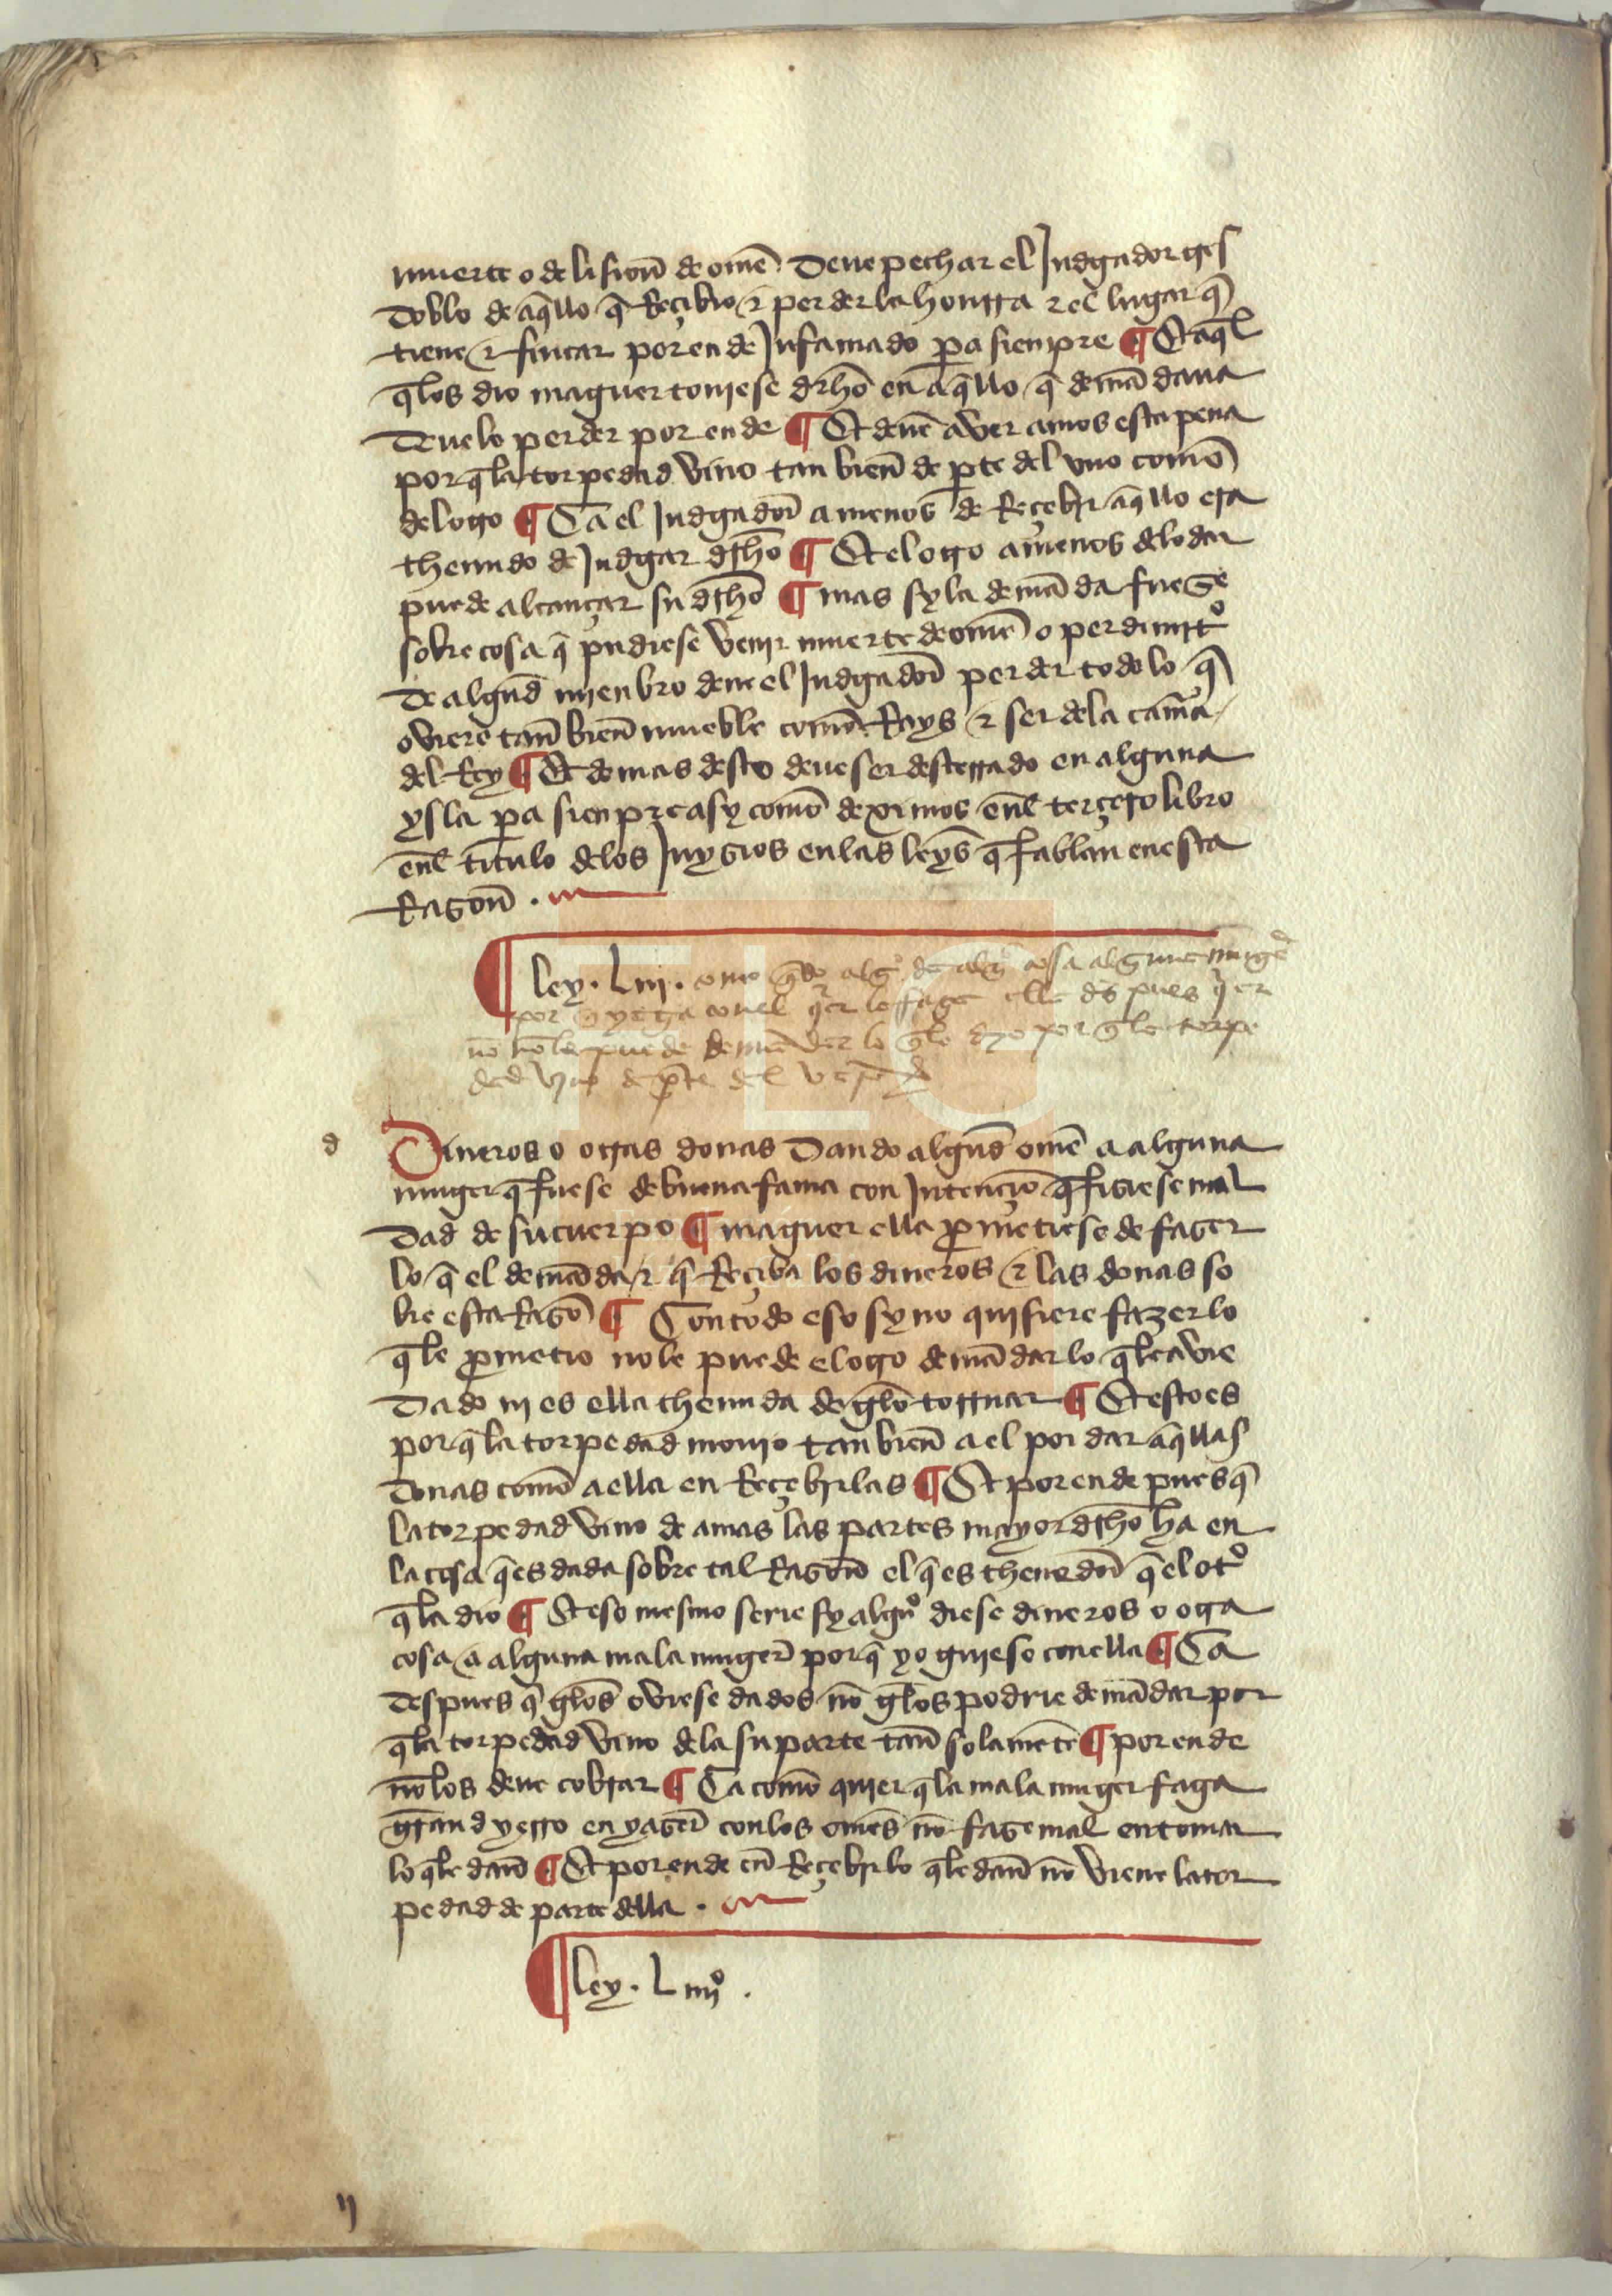 muerte o de lision de ome deue pechar el Judgador tres
doblo de aq̄llo q̄ Reçibio ⁊ perder la honrra ⁊ el lugar q̄
tiene ⁊ fincar por ende Jnfamado pa sienpre ¶ Et aql̄
q̄ los dio maguer touiese drho en aq̄llo q̄ demādaua
deuelo perder por ende ¶ Et deue aver amos esta pena
por q̄ la torpedad vino tan bien̄ de pte del vno como
del otro ¶ Ca el Judgador a menos de Reçebir aq̄llo era
thenudo de Judgar drho ¶ Et el otro a menos de lo dar
puede alcançar su drho ¶ mas sy la demāda fuese
sobre cosa q̄ pudiese venir muerte de ome o perdimito
de algund mienbro deue el Judgador perder todo lo q̄
oviere tan̄ bien̄ mueble como Rays ⁊ ser de la camā
del Rey ¶ Et demas desto deue ser desterrado en alguna
ysla pa sienpre asy como deximos enel̄ terçero libro
enel̄ titulo delos Juyzios en las leys q̄ fablan en esta
Razon̄ .
¶ ley . Liij . como q̄ndo algo de alg cosa alguna muger
por q̄ yaga con el q̄er lo faze ella despues q̄er
no no le puede demādar lo q̄ le dyo por q̄ la torpe
dad vyno de pte del
d
Dineros o otras donas dando algund ome a alguna
muger q̄ fuese de buena fama con Jntençio q̄ fiziese mal
dad de su cuerpo ¶ maguer ella pmetiese de fazer
lo q̄ el demāda ⁊ q̄ Reçiba los dineros ⁊ las donas so
bre esta Razō ¶ Con todo eso sy no quisiere fazerlo
q̄ le pmetio no le puede el otro demādar lo q̄ le avie
dado ni es ella thenuda de gelo tornar ¶ Et esto es
por q̄ la torpedad mouio tan bien̄ a el por dar aq̄llas
donas como a ella en Reçebirlas ¶ Et por ende pues q̄
la torpedad vino de amas las partes mayor drho ha en
la cosa q̄ es dada sobre tal Razon̄ el q̄ es thenedor q̄ el otº
q̄ la dio ¶ Et eso mesmo serie sy algunº diese dineros o otra
cosa a alguna mala muger por q̄ yoguiese con ella ¶ Ca
despues q̄ gelos oviese dados no gelos podrie demādar por
q̄ la torpedad vino dela su parte tan̄ solamēte ¶ por ende
no los deue cobrar ¶ Ca como quier q̄ la mala muger faga
grand yerro en yazer con los omes no faze mal en tomar
lo q̄ le dan̄ ¶ Et por ende en Reçebir lo q̄ le dan̄ no viene la tor
pedad de parte della .
¶ ley . Liiijº .